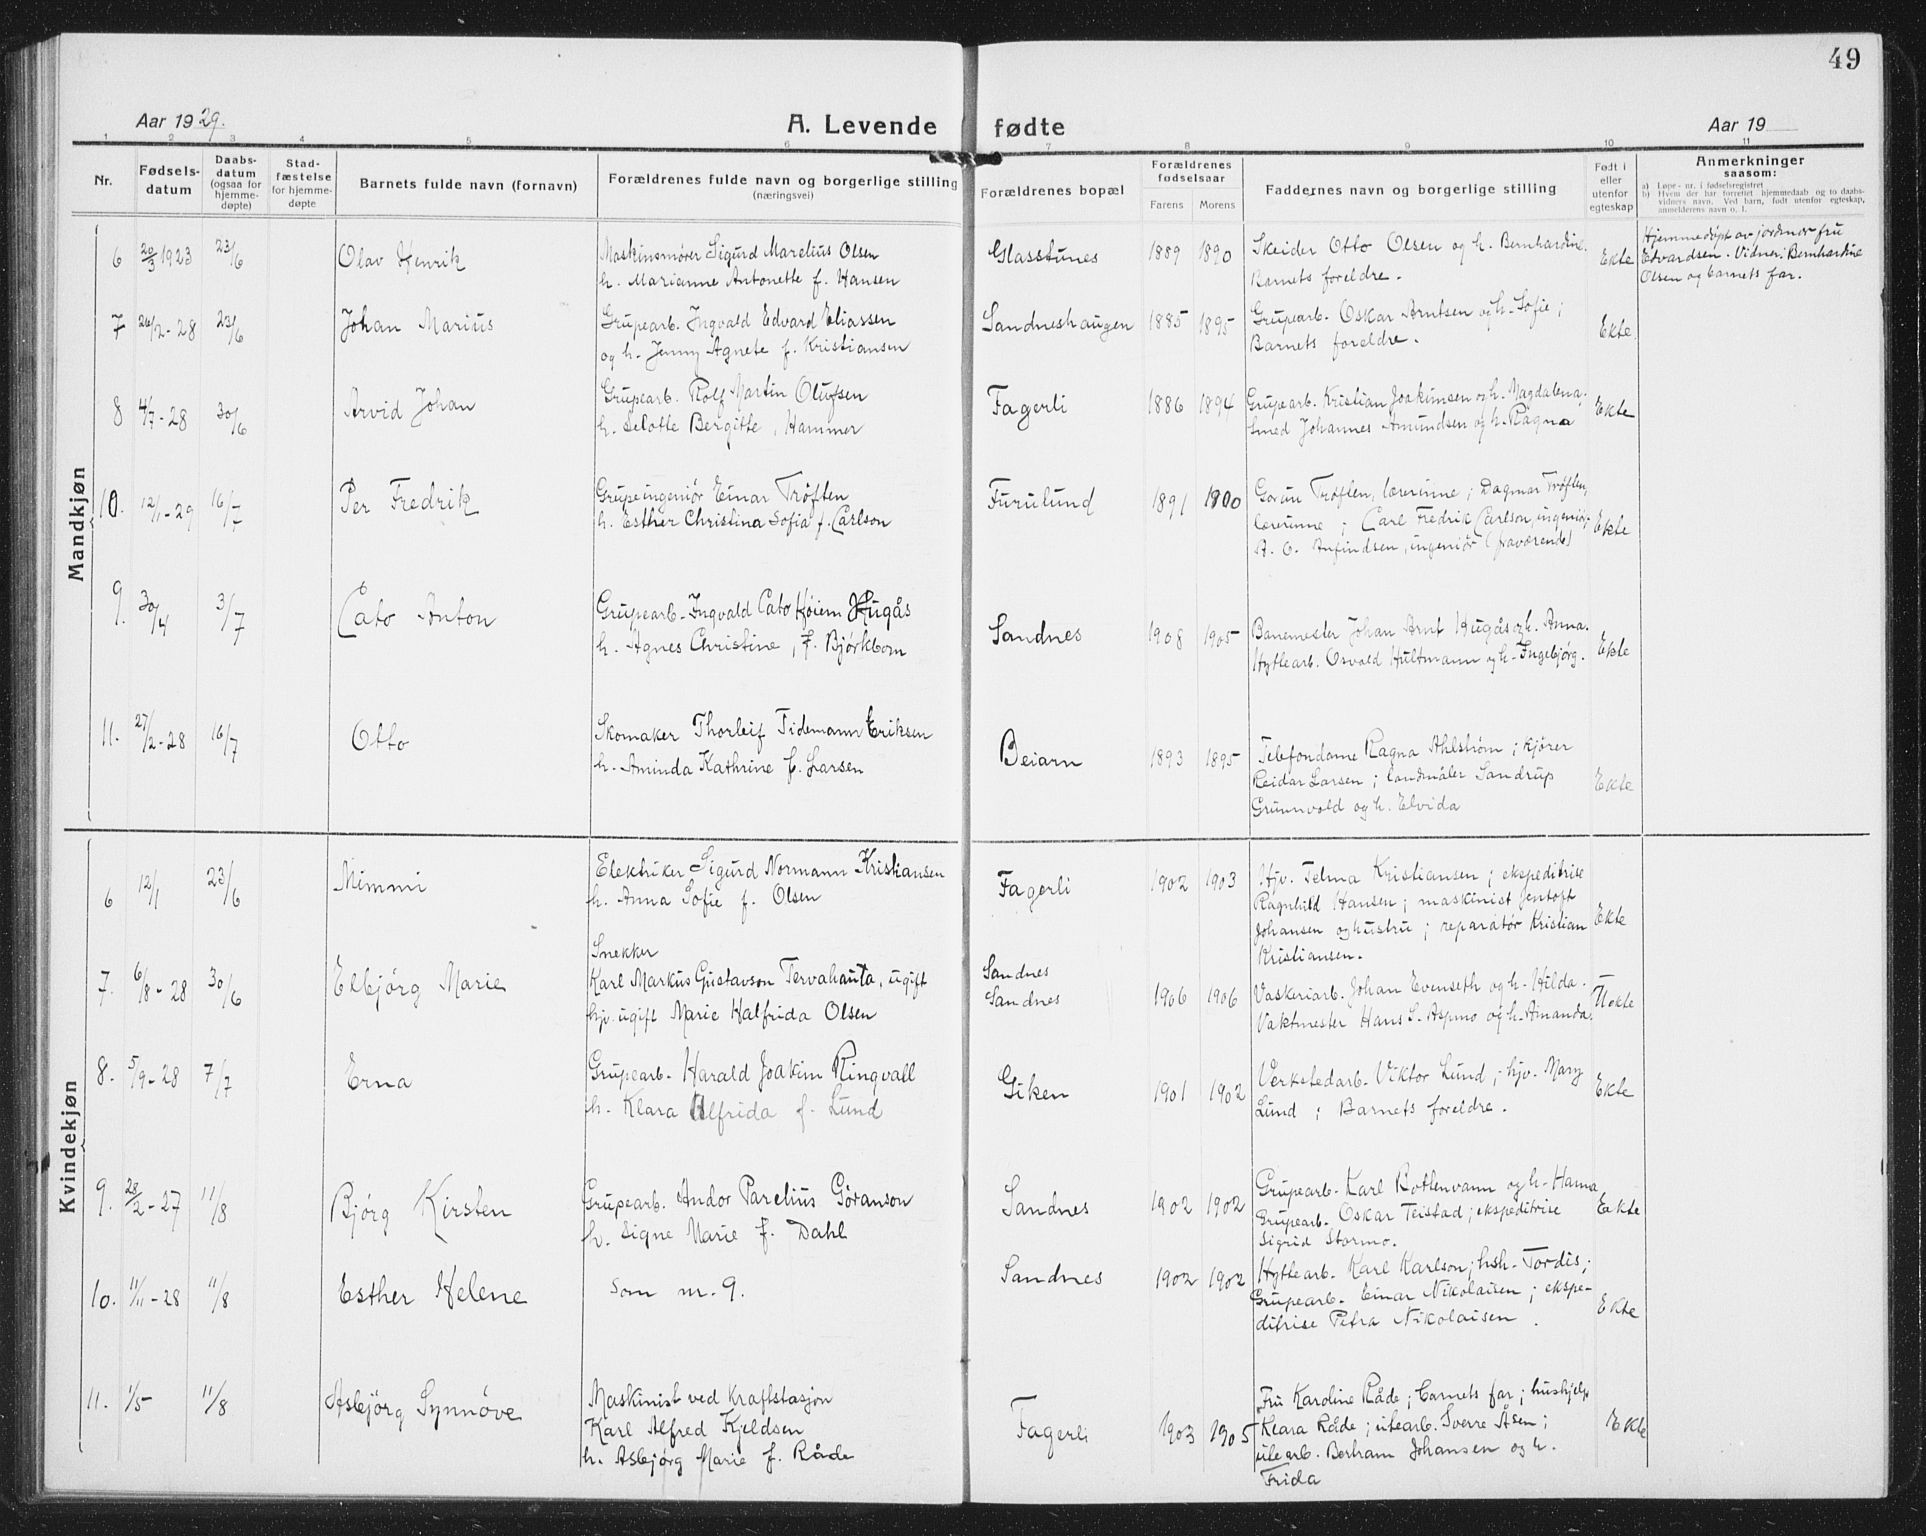 49
Aar 1929.
A. Levende fødte
Aar 19
1 2 3 4 5 6 7 8 9 10 11
Nr.
Fødsels-
datum
Daabs-
datum
(ogsaa for
hjemme-
døpte)
Stad-
fæstelse
for hjemme-
døpte
Barnets fulde navn (fornavn)
Forældrenes fulde navn og borgerlige stilling
(næringsvei)
Forældrenes bopæl
Forældrenes
fødselsaar
Farens Morens
Faddernes navn og borgerlige stilling
Født i
eller
utenfor
egteskap
Anmerkninger
saasom:
a) Løpe-nr. i fødselsregistret
b) Hvem der har forrettet hjemmedaab og to daabs-
vidners navn. Ved barn, født utenfor egteskap,
anmelderens navn o. l.
Mandkjøn
6 20/3 1923 23/6 Olav Henrik
Maskinsmører Sigurd Marelius Olsen
h. Marianne Antonette f. Hansen
Glasstunes 1889 1890
Skeider Otto Olsen og h. Bernhardine.
Barnets foreldre.
Ekte
Hjemmedøpt av jordmor fru
Edvardsen. Vidner: Bernhardine
Olsen og barnets far.
7 26/2-28 23/6 Johan Marius
Grupearb. Ingvald Edvard Eliassen
og h. Jenny Agnete f. Kristiansen
Sandneshaugen 1885 1895
Grupearb. Oskar Arntsen og h. Sofie;
Barnets foreldre.
Ekte
8 4/7-28 30/6 Arvid Johan
Grupearb. Rolf Martin Olufsen
h. Selotte Bergitte, Hammer
Fagerli 1886 1894
Grupearb. Kristian Joakimsen og h. Magdalena.
Smed Johannes Amundsen og h. Ragna
Ekte
10. 12/1-29 16/7 Per Fredrik
Grupeingeniør Einar Trøften
h. Esther Christina Sofia f. Carlson
Furulund 1891 1900
Gorun Trøften, lærerinne; Dagmar Trøften,
lærerinne; Carl Fredrik Carlson, ingeniør,
A. O. Anfindsen, ingeniør (fraværende)
Ekte
9. 30/4 3/7 Cato Anton
Grupearb. Ingvald Cato Høiem Hugås
h. Agnes Christine, f. Bjørkbom
Sandnes 1908 1905
Banemester Johan Arnt Hugås og h. Anna.
Hyttearb. Osvald Hultmann og h. Ingebjørg.
Ekte
11. 27/2-28 16/7 Otto
Skomaker Thorleif Tidemann Eriksen
h. Aminda Kathrine f. Larsen
Beiarn 1893 1895
Telefondame Ragna Ahlstrøm; kjører
Reidar Larsen; landmåler Sandrup
Grunnvold og h. Elvida
Ekte
Kvindekjøn
6 12/1 23/6 Mimmi
Elektriker Sigurd Normann Kristiansen
h. Anna Sofie f. Olsen
Fagerli 1902 1903
Hjv. Telma Kristiansen; ekspeditrise
Ragnhild Hansen; maskinist Jentoft
Johansen og hustru; reparatør Kristian
Kristiansen.
Ekte
7. 6/8-28 30/6 Elbjørg Marie
Snekker
Karl Markus Gustavson Tervahauta, ugift
hjv. ugift Marie Halfrida Olsen
Sandnes
Sandnes 1906 1906
Vaskeriarb. Johan Evenseth og h. Hilda.
Vaktmester Hans S. Aspmo og h. Amanda.
Uekte
8. 5/9-28 7/7 Erna
Grupearb. Harald Joakim Ringvall
h. Klara Alfrida f. Lund
Giken 1901 1902
Verkstedarb. Viktor Lund; hjv. Mary
Lund; Barnets foreldre.
Ekte
9. 28/2-27 11/8 Bjørg Kirsten
Grupearb. Andor Parelius Göranson
h. Signe Marie f. Dahl
Sandnes 1902 1902
Grupearb. Karl Botlenvann og h. Hanna
Grupearb. Oskar Teistad; ekspeditrise
Sigrid Stormo.
Eekte
10. 11/11-28 11/8 Esther Helene
Som nr. 9.
Sandnes 1902 1902
Hyttearb. Karl Karlson; hsh. Tordis;
Grupearb. Einar Nikolaisen; ekspe-
ditrise Petra Nikolaisen.
Ekte
11. 1/5 11/8 Asbjørg Synnøve
Maskinist ved Kraftstasjon
Karl Alfred Kjeldsen
h. Asbjørg Marie f. Råde
Fagerli 1903 1905
Fru Karoline Råde; barnets far; hushjelp
Klara Råde; utearb. Sverre Åsen;
utearb. Berhram Johansen og h.
Frida
Ekte